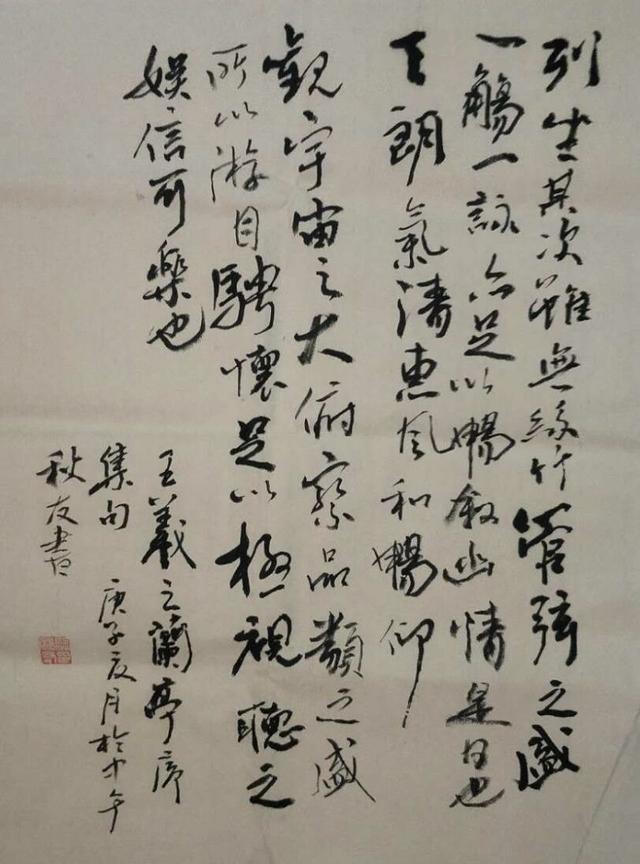 列坐其次雖無絲竹管弦之盛
一觴一詠亦足以暢敘幽情是日也
天朗氣清惠風和暢仰
觀宇宙之大俯察品類之盛
所以游目騁懷足以極視聽之
娛信可樂也
王羲之蘭亭序
集句 庚子夏月於中午
秋友書